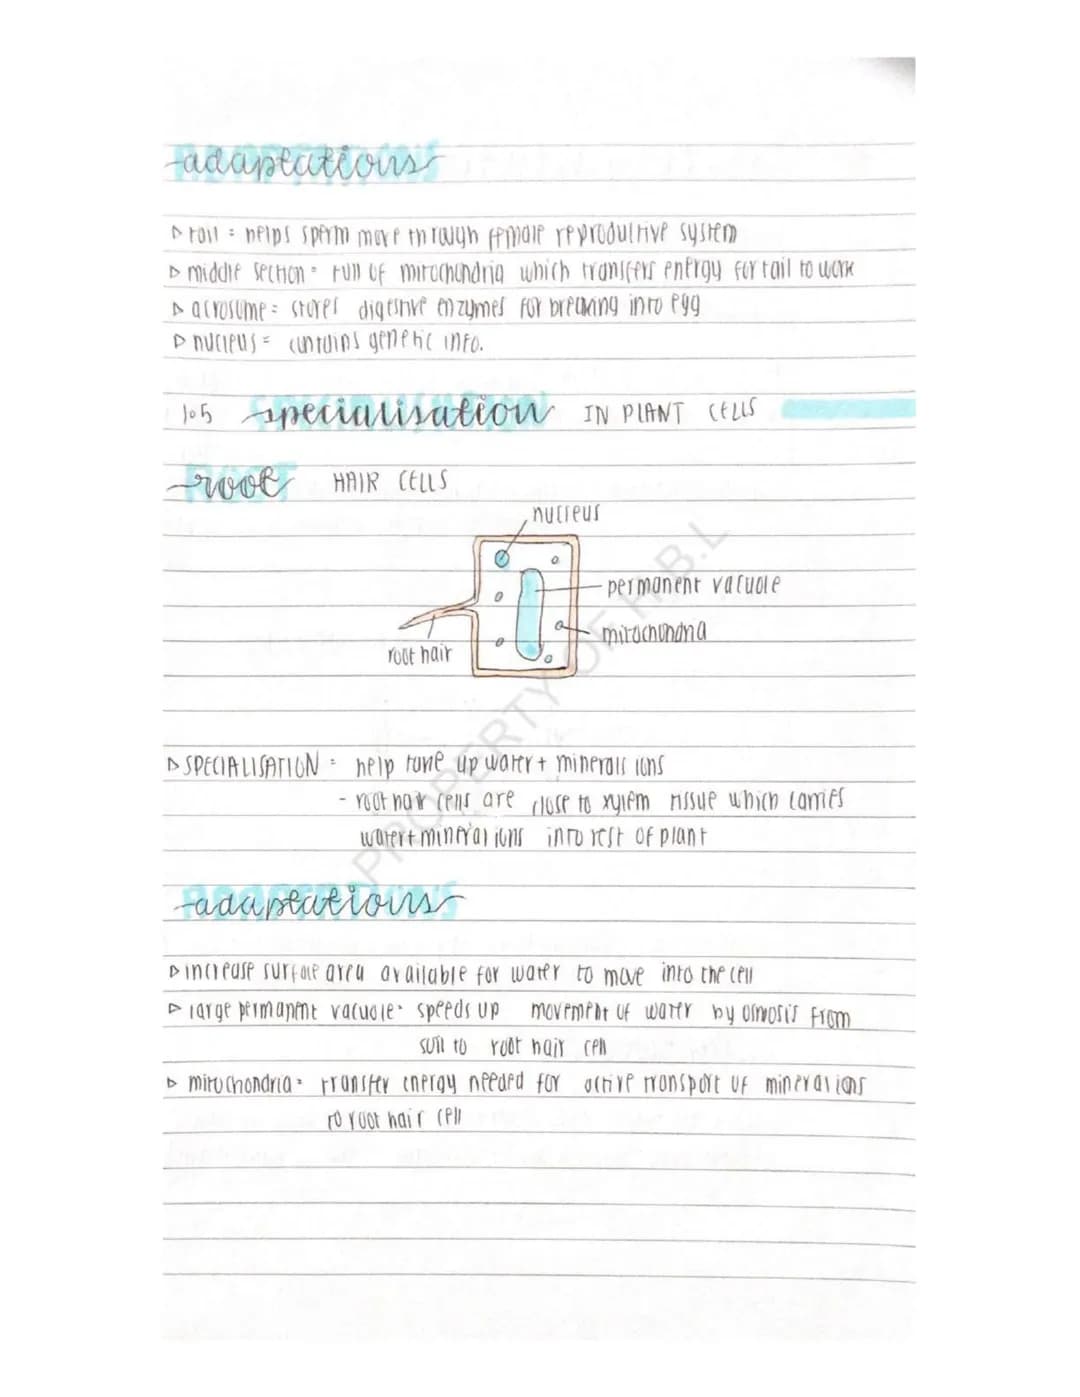 adaptations
▷ tail = helps sperm move through female reproductive system
▷ middle section = full of mitochondria which transfers energy for tail to work
▷ acrosome = stores digestive enzymes for breaking into egg
▷ nucleus = contains genetic info.
1.5 specialisation IN PLANT CELLS
root HAIR CELLS
nucleus
permanent vacuole
mitochondria
root hair
▷ SPECIALISATION = help take up water + minerals ions
- root hair cells are close to xylem tissue which carries
water + mineral ions into rest of plant
adaptations
▷ increase surface area available for water to move into the cell
▷ large permanent vacuole = speeds up movement of water by osmosis from
soil to root hair cell
▷ mitochondria = transfer energy needed for active transport of mineral ions
to root hair cell
PROPERTY OF H.B.L